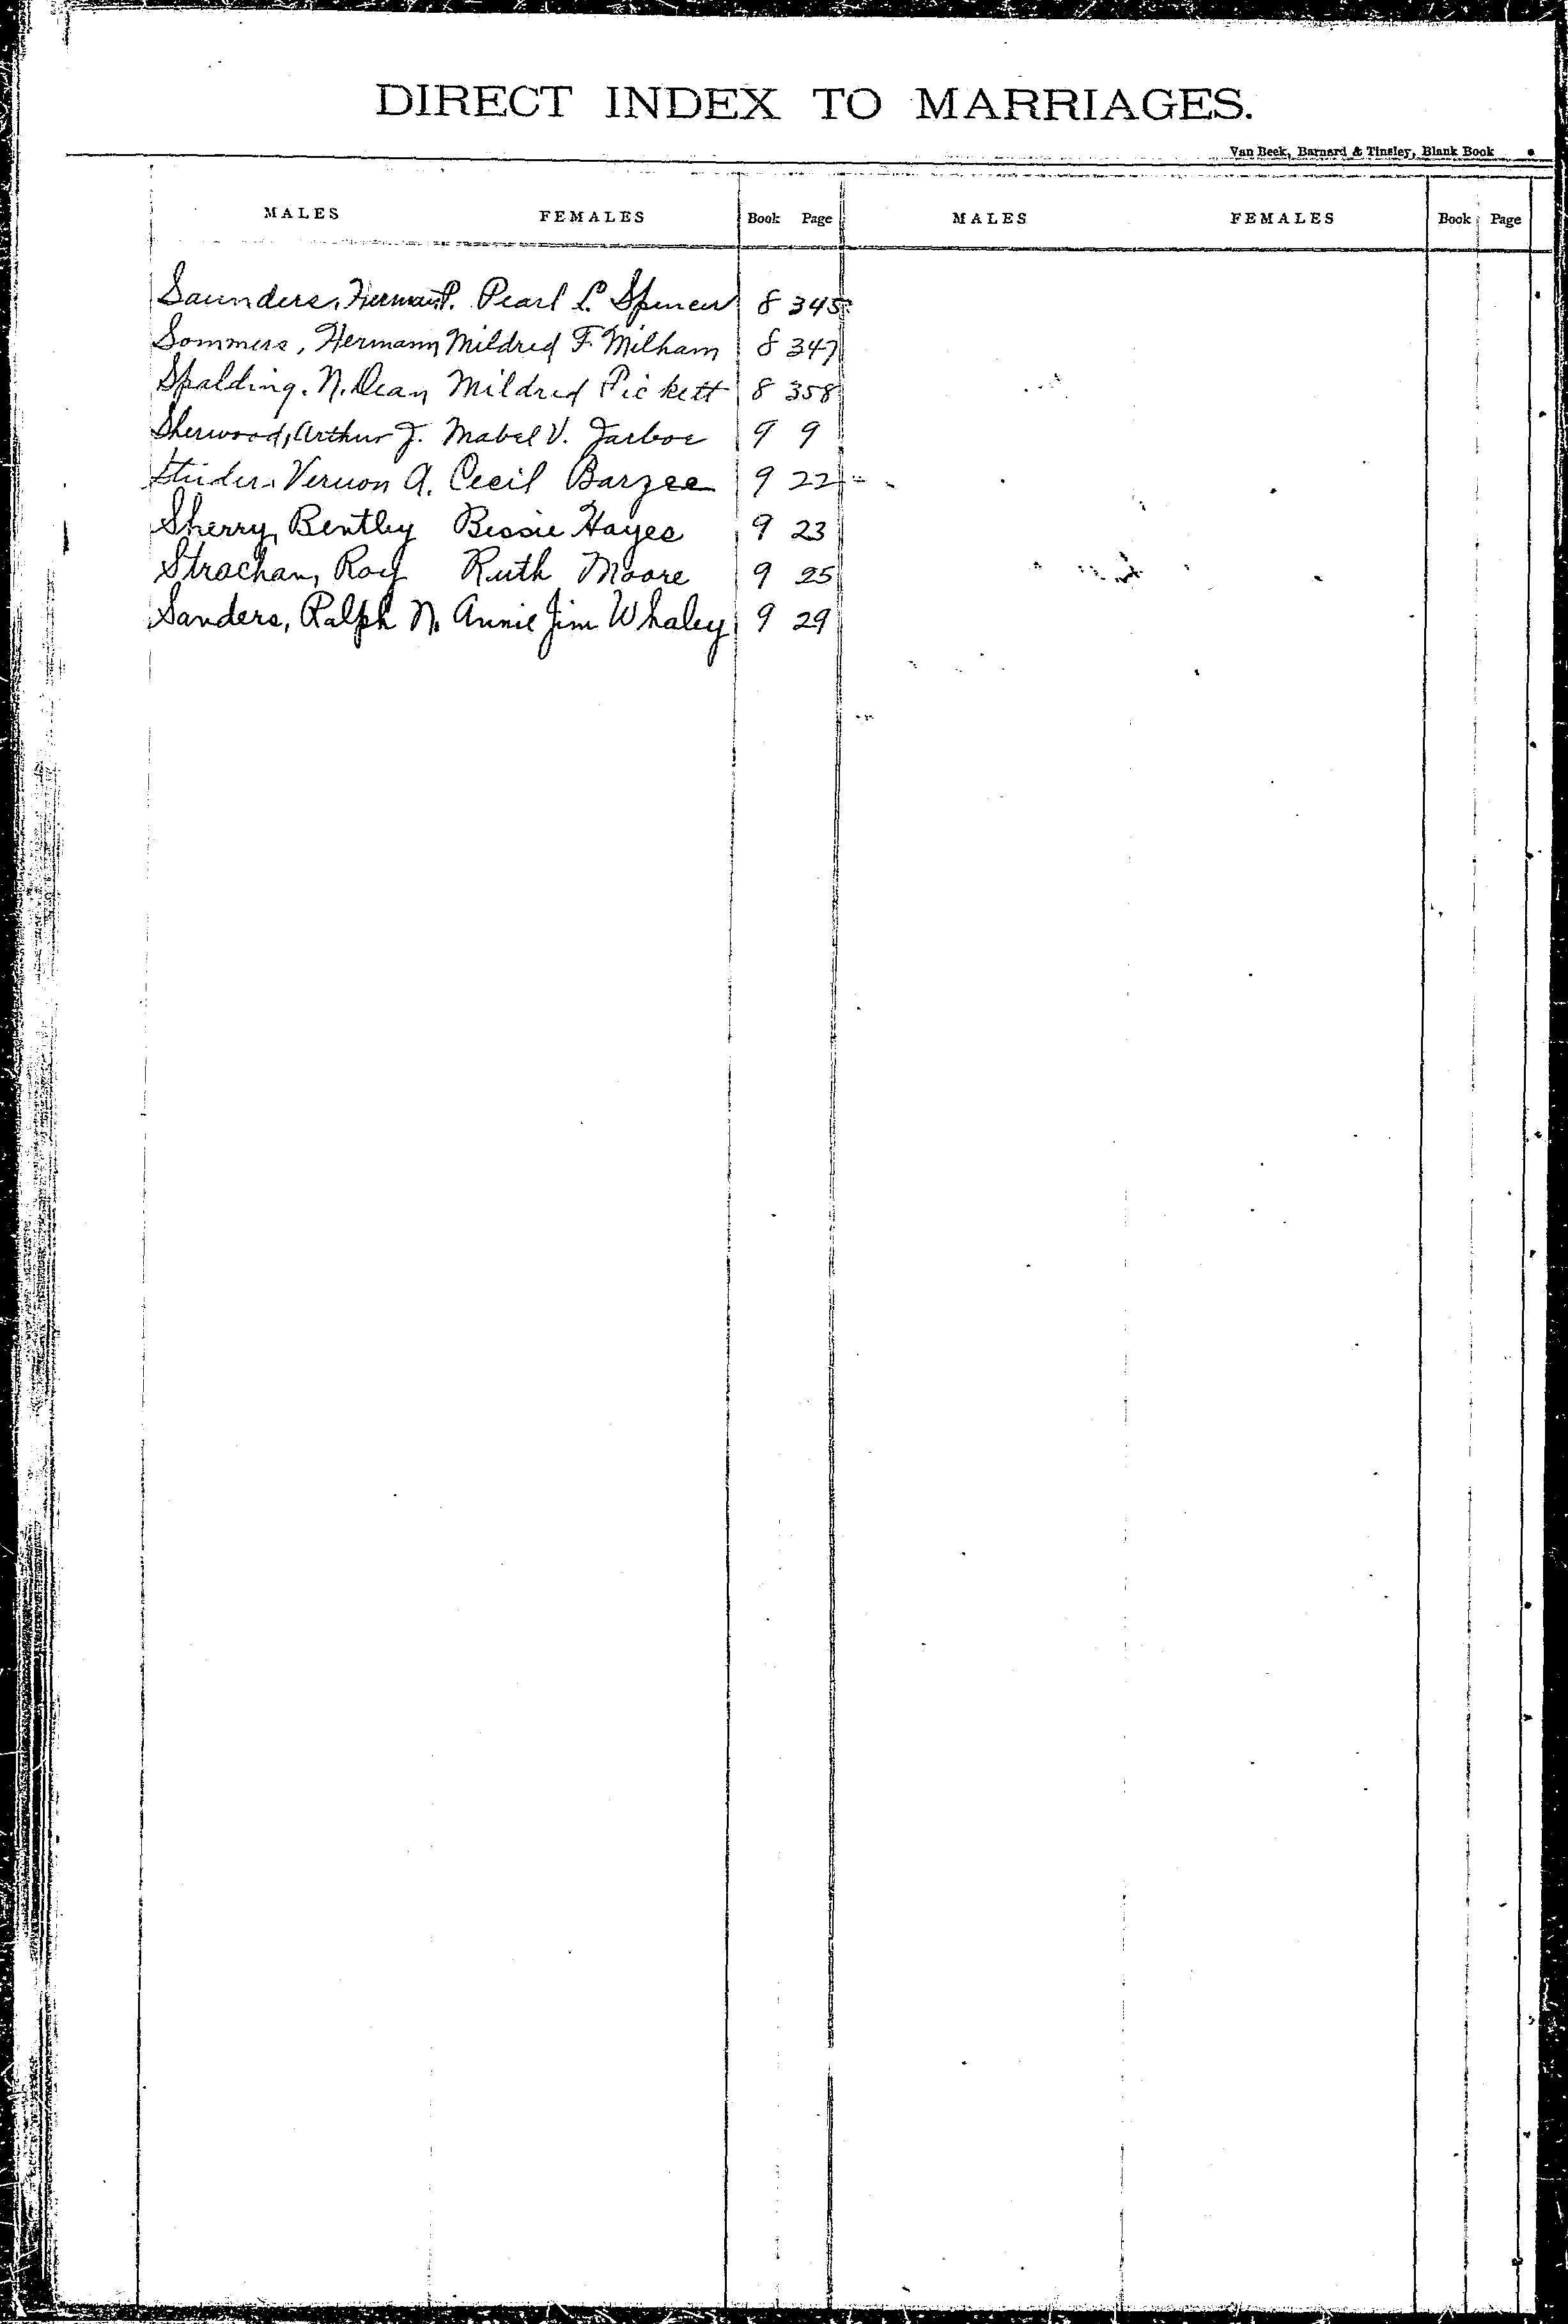 DIRECT INDEX TO MARRIAGES.
Van Beek, Barnard & Tinsley, Blank Book
MALES FEMALES Book Page MALES FEMALES Book Page
Saunders, Herman P. Pearl L. Spencer 8 345
Sommers, Hermann Mildred F. Milham 8 347
Spalding, N. Dean Mildred Pickett 8 358
Sherwood, Arthur J. Mabel V. Jarboe 9 9
Vernon A. Cecil Barzee 9 22
Sherry, Bentley Bessie Hayes 9 23
Strachan, Roy Ruth Moore 9 25
Sanders, Ralph N. Annie Jim Whaley 9 29